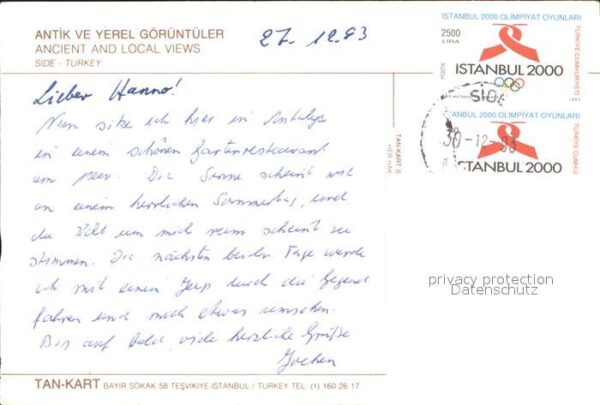 ANTİK VE YEREL GÖRÜNTÜLER
ANCIENT AND LOCAL VIEWS
SIDE - TURKEY
27. 12. 93
Lieber Hanno!
Nun sitze ich hier in Antalya
in einem schönen Gartenrestaurant
am Meer. Die Sonne scheint wie
an einem herrlichen Sommertag, und
die Welt um mich rum scheint zu
stimmen. Die nächsten beiden Tage werde
ich mit einem Jeep durch die Gegend
fahren und mich etwas umsehen.
Bis auf bald, viele herzliche Grüße
Jochen
TAN-KART BAYIR SOKAK 58 TEŞVİKİYE-İSTANBUL / TURKEY TEL: (1) 160 26 17
TAN-KART
İSTANBUL 2000 OLİMPİYAT OYUNLARI
2500
LİRA
POSTA
TÜRKİYE CUMHURİYETİ
ISTANBUL 2000
SIDE
30-12-93
İSTANBUL 2000 OLİMPİYAT OYUNLARI
ISTANBUL 2000
privacy protection
Datenschutz